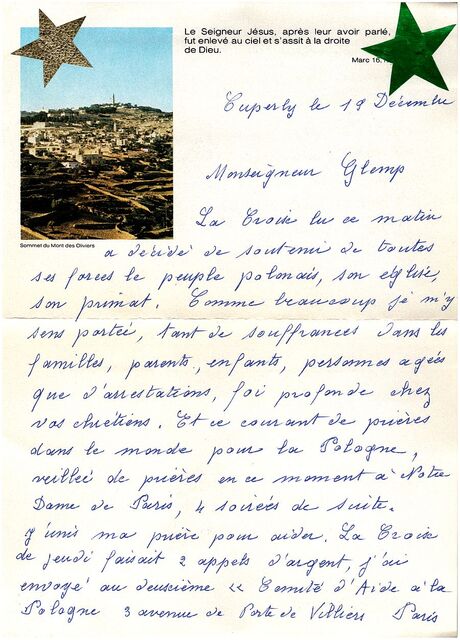 Le Seigneur Jésus, après leur avoir parlé,
fut enlevé au ciel et s'assit à la droite
de Dieu.
Marc 16,
Cuperly le 19 Décembre
Monseigneur Glemp
La Croix lu ce matin
a décidé de soutenir de toutes
Sommet du Mont des Oliviers
ses forces le peuple polonais, son église,
son primat. Comme beaucoup je m'y
sens portée, tant de souffrances dans les
familles, parents, enfants, personnes agées
que d'arrestations, foi profonde chez
vos chrétiens. Et ce courant de prières
dans le monde pour la Pologne,
veillée de prières en ce moment à Notre
Dame de Paris, 4 soirées de suite.
J'unis ma prière pour aider. La Croix
de jeudi faisait 2 appels d'argent, j'ai
envoyé au deuxième << Comité d'Aide à la
Pologne 3 avenue de Porte de Villiers Paris